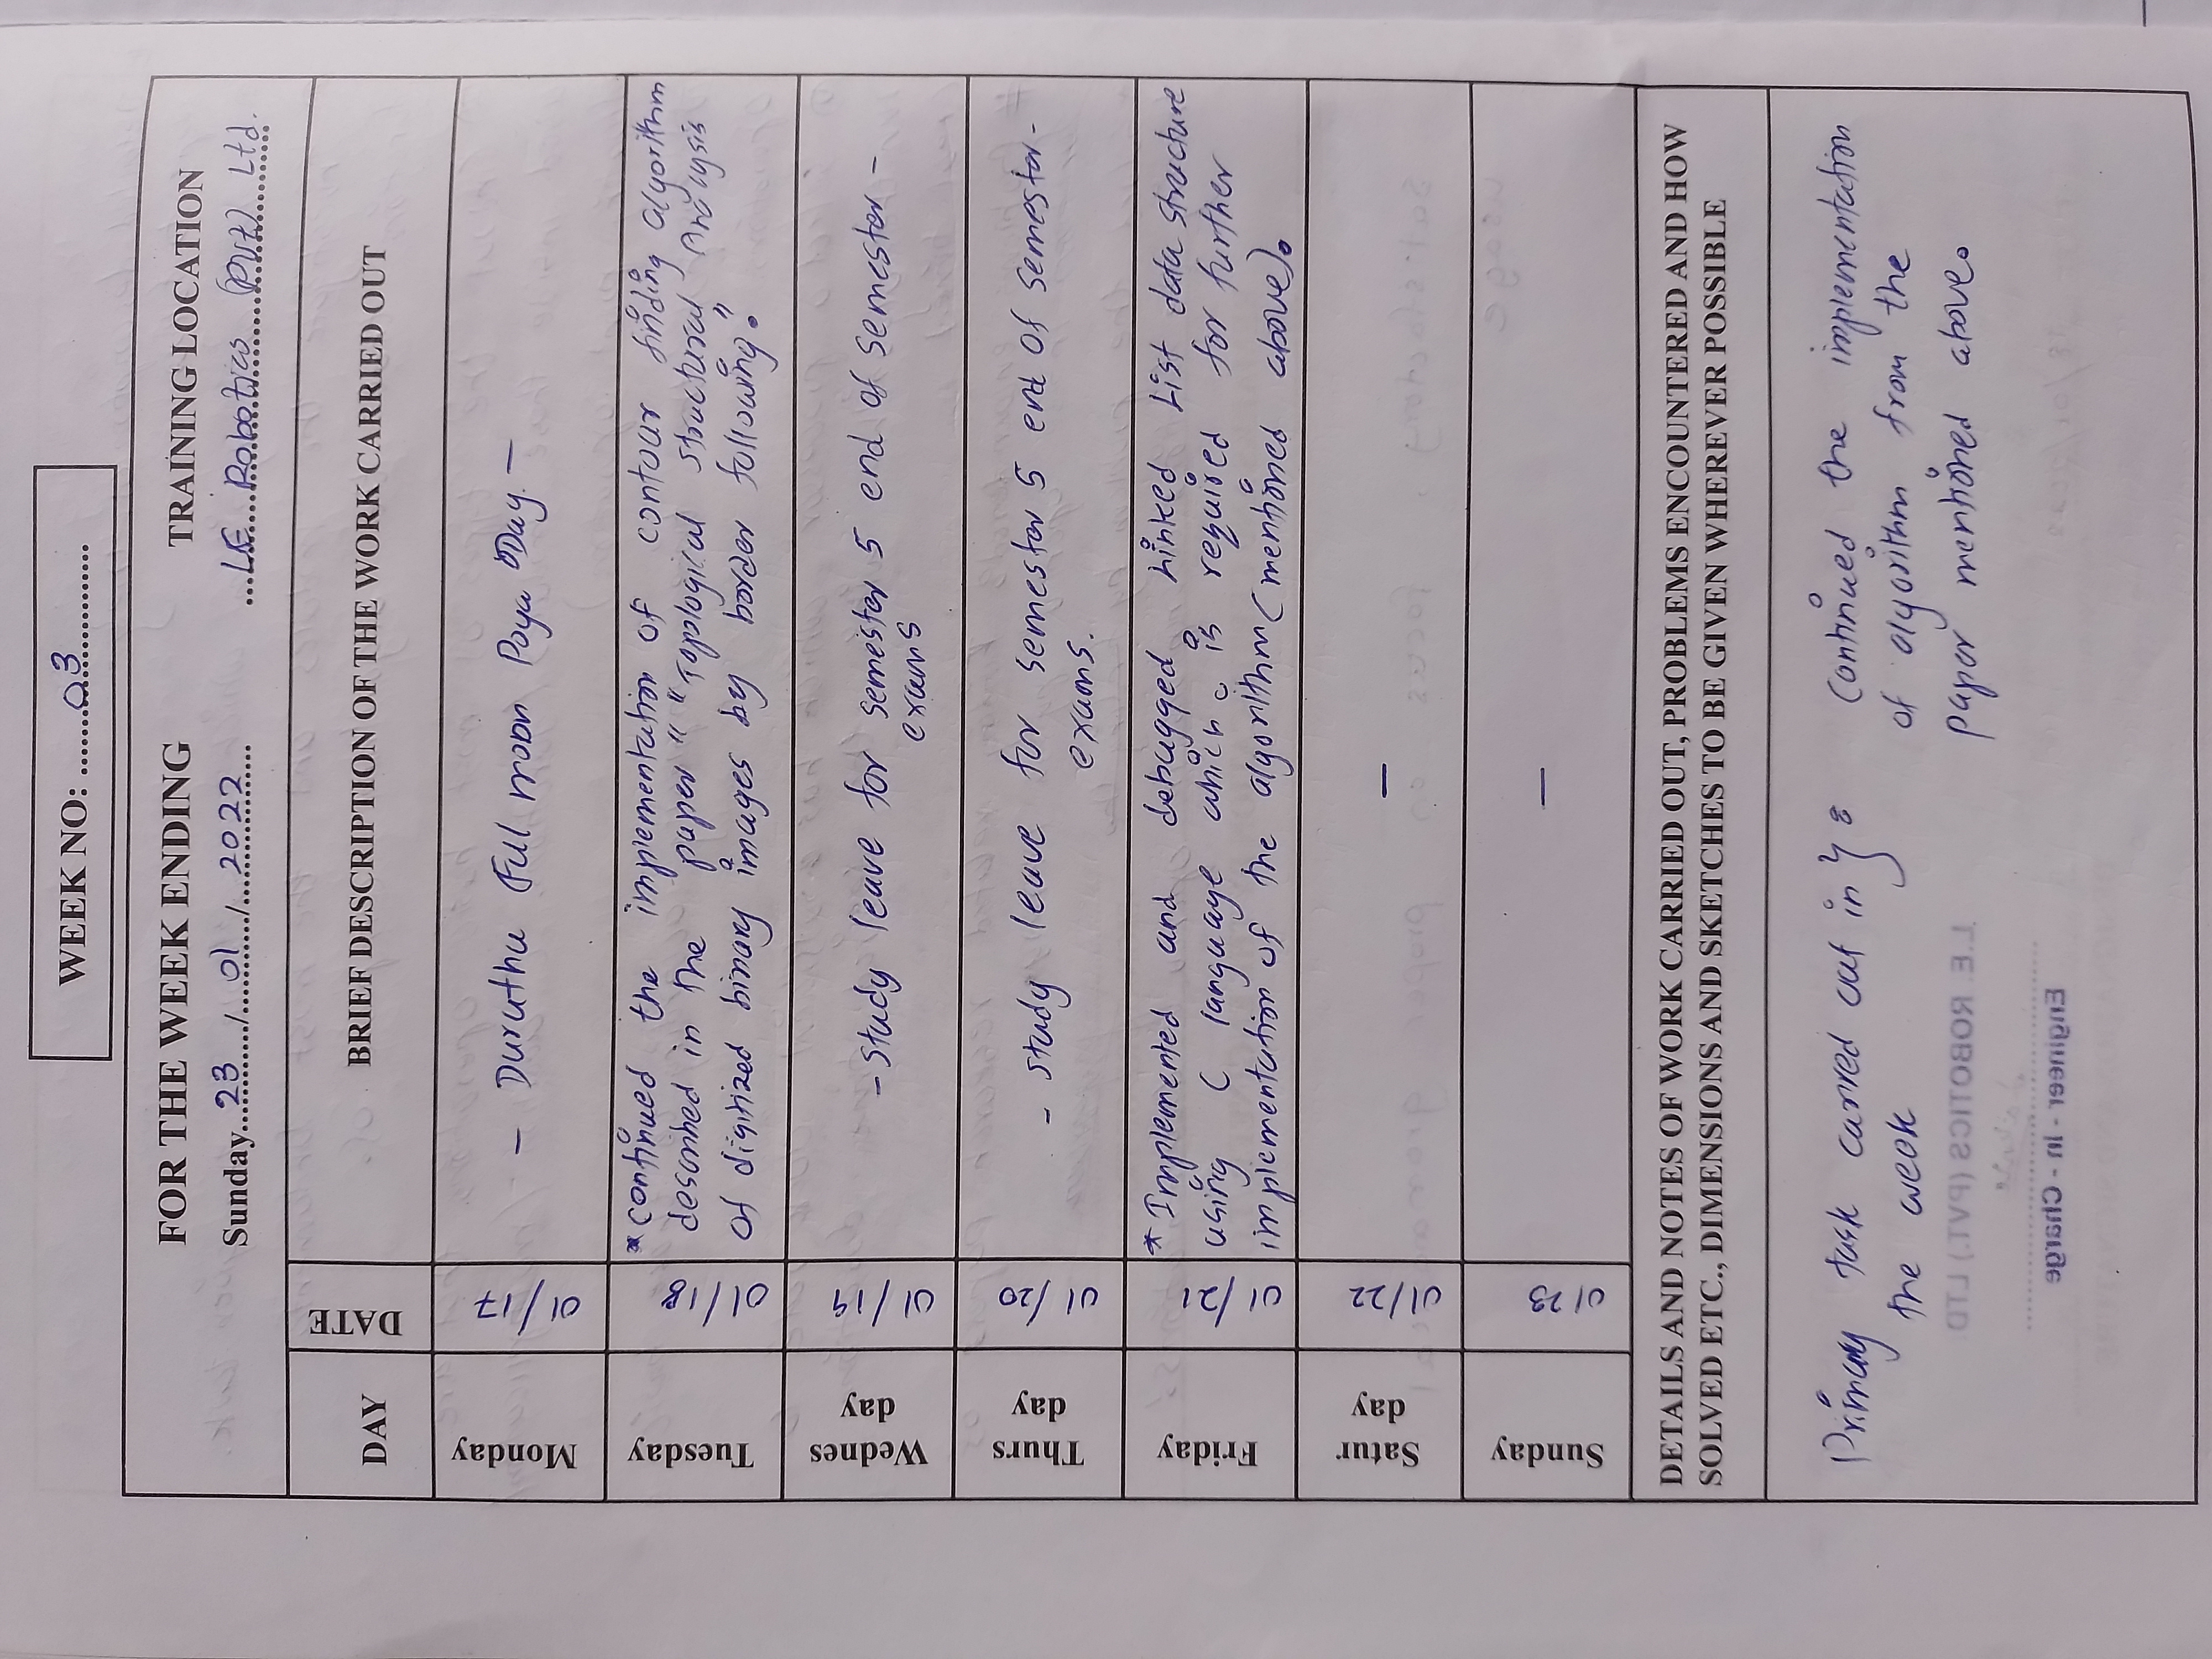 WEEK NO: ........03............
FOR THE WEEK ENDING
TRAINING LOCATION
Sunday...23....../....01..../...2022......
LE Robotics (Pvt) Ltd.
DAY
DATE
BRIEF DESCRIPTION OF THE WORK CARRIED OUT
Monday
01/17
- Duruthu Full moon Poya Day. -
Tuesday
01/18
* continued the implementation of contour finding algorithm
described in the paper " "Topological structural Analysis
of digitized binary images by border following."
Wednes
day
01/19
- Study leave for semester 5 end of semester -
exams
Thurs
day
01/20
- Study leave for semester 5 end of semester -
exams.
Friday
01/21
* Implemented and debugged Linked List data structure
using C language which is required for further
implementation of the algorithm (mentioned above).
Satur
day
01/22
—
Sunday
01/23
—
DETAILS AND NOTES OF WORK CARRIED OUT, PROBLEMS ENCOUNTERED AND HOW
SOLVED ETC., DIMENSIONS AND SKETCHES TO BE GIVEN WHEREVER POSSIBLE
Primary task carried out in } : Continued the implementation
the week of algorithm from the
paper mentioned above.
L.E. ROBOTICS (PVT.) LTD
Engineer - In - Charge